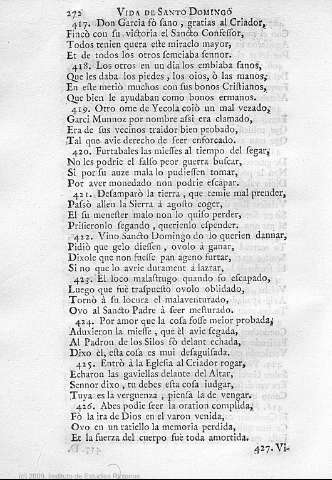 272 VIDA DE SANTO DOMINGO
417. Don Garcia fò sano, gratias al Criador,
Fincò con su victoria el Sancto Confessor,
Todos tenien quera este miraclo mayor,
Et de todos los otros semeiaba sennor.
418. Los otros en un dia los embiaba sanos,
Que les daba los piedes, los oios, ò las manos,
En este metiò muchos con sus bonos Cristianos,
Que bien le ayudaban como bonos ermanos.
419. Otro ome de Yecola coiò un mal vezado,
Garci Munnoz por nombre assi era clamado,
Era de sus vecinos traidor bien probado,
Tal que avie derecho de seer enforcado.
420. Furtabales las miesses al tiempo del segar,
No les podrie el falso peor guerra buscar,
Si por su auze mala lo pudiessen tomar,
Por aver monedado non podrie escapar.
421. Desamparò la tierra, que temie mal prender,
Passò allen la Sierra á agosto coger,
El su menester malo non lo quiso perder,
Prisieronlo segando, querienlo espender.
422. Vino Sancto Domingo do lo querien dannar,
Pidiò que gelo diessen, ovolo á ganar,
Dixole que non fuesse pan ageno furtar,
Si no que lo avrie durament á lazrar,
423. El loco malastrugo quando fo escapado,
Luego que fué traspuesto ovolo oblidado,
Tornò á su locura el malaventurado,
Ovo al Sancto Padre á seer mesturado.
424. Por amor que la cosa fosse meior probada,
Aduxieron la miesse, que èl avie segada,
Al Padron de los Silos fò delant echada,
Dixo èl, esta cosa es mui desaguisada.
425. Entrò á la Eglesia al Criador rogar,
Echaron las gaviellas delante del Altar,
Sennor dixo, tu debes esta cosa iudgar,
Tuya es la verguenza, piensa la de vengar.
426. Abes podie seer la oration complida,
Fò la ira de Dios en el varon venida,
Ovo en un ratiello la memoria perdida,
Et la fuerza del cuerpo fuè toda amortida.
427. Vi-
(c) 2009, Instituto de Estudios Riojanos